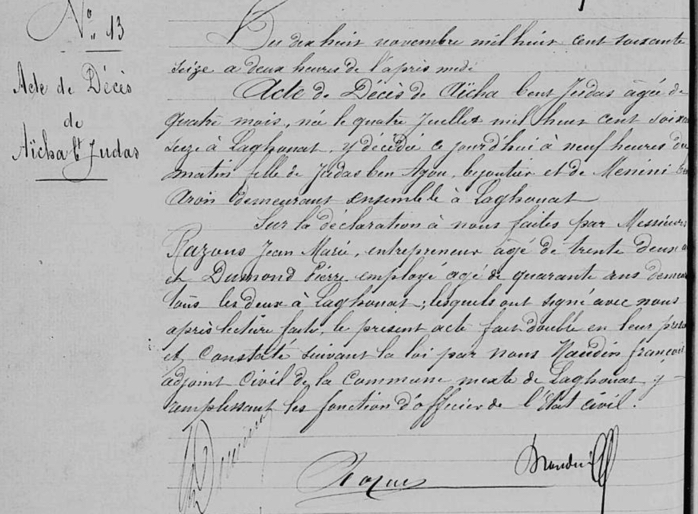 N° 13
Acte de Décès
de
Aïcha bt Judas
Du dix huit novembre mil huit cent soixante
seize a deux heures de l'apres midi
Acte de Décès de Aïcha bent Judas agée de
quatre mois, née le quatre Juillet mil huit cent soixa
seize à Laghouat, y décédée ce jourd'hui à neuf heures du
matin fille de Judas ben Azou, bijoutier et de Messini
Aron demeurant ensemble à Laghouat
Sur la déclaration à nous faites par Messieurs
Razous Jean Marie, entrepreneur agé de trente deux a
et Dumond Pierre employé agé de quarante ans demeu
tous les deux à Laghouat, lesquels ont signé avec nous
après lecture faite, le present acte fait double en leur prese
et Constaté suivant la loi par nous Naudin françois
adjoint Civil de la Commune mixte de Laghouat y
remplissant les fonction d'officier de l'Etat civil.
Razous